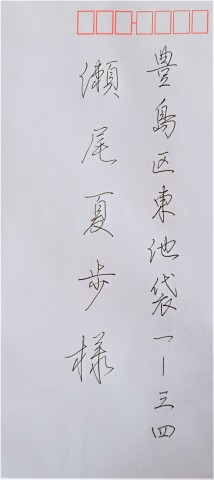 豊島区東池袋一ー三四
瀬尾夏歩様